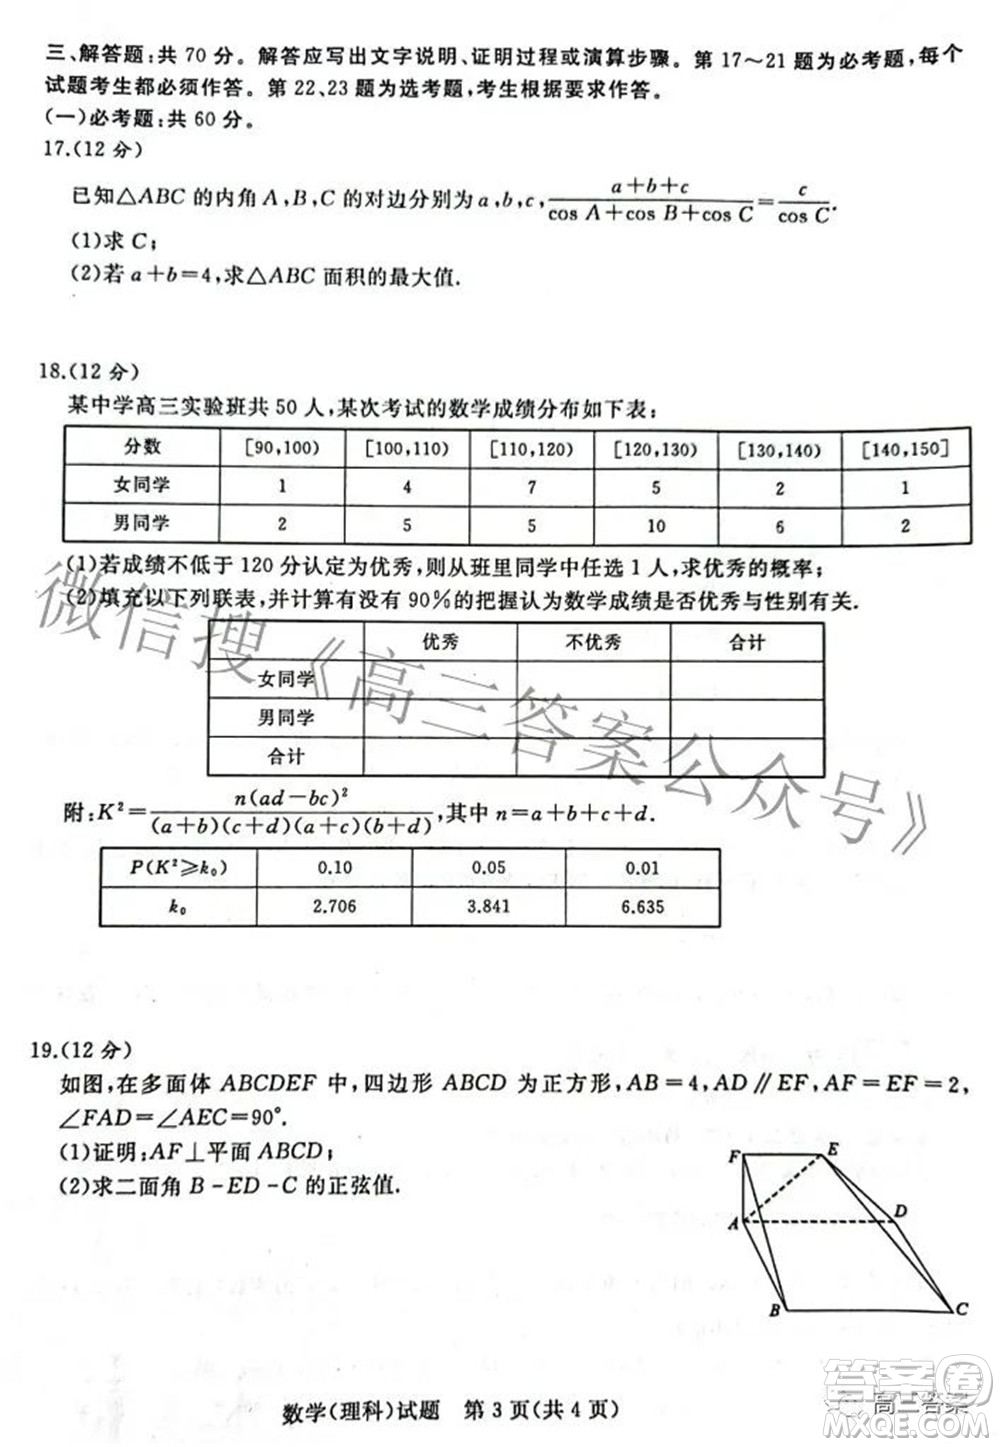 三、解答题:共 70 分。解答应写出文字说明、证明过程或演算步骤。第 17～21 题为必考题,每个
试题考生都必须作答。第 22、23 题为选考题,考生根据要求作答。
(一)必考题:共 60 分。
17.(12 分)
已知△ABC 的内角 A,B,C 的对边分别为 a,b,c, (a+b+c)/(cos A+cos B+cos C)=c/cos C.
(1)求 C;
(2)若 a+b=4,求△ABC 面积的最大值.
18.(12 分)
某中学高三实验班共 50 人,某次考试的数学成绩分布如下表:
分数 [90,100) [100,110) [110,120) [120,130) [130,140) [140,150]
女同学 1 4 7 5 2 1
男同学 2 5 5 10 6 2
(1)若成绩不低于 120 分认定为优秀,则从班里同学中任选 1 人,求优秀的概率;
(2)填充以下列联表,并计算有没有 90%的把握认为数学成绩是否优秀与性别有关.
优秀 不优秀 合计
女同学
男同学
合计
附:K²=n(ad-bc)²/((a+b)(c+d)(a+c)(b+d)),其中 n=a+b+c+d.
P(K²≥k₀) 0.10 0.05 0.01
k₀ 2.706 3.841 6.635
19.(12 分)
如图,在多面体 ABCDEF 中,四边形 ABCD 为正方形,AB=4,AD∥EF,AF=EF=2,
∠FAD=∠AEC=90°.
(1)证明:AF⊥平面 ABCD;
(2)求二面角 B-ED-C 的正弦值.
F E
A D
B C
数学(理科)试题 第 3 页(共 4 页)
微信搜《高三答案公众号》
答案圈
高三答案
MXQE.COM